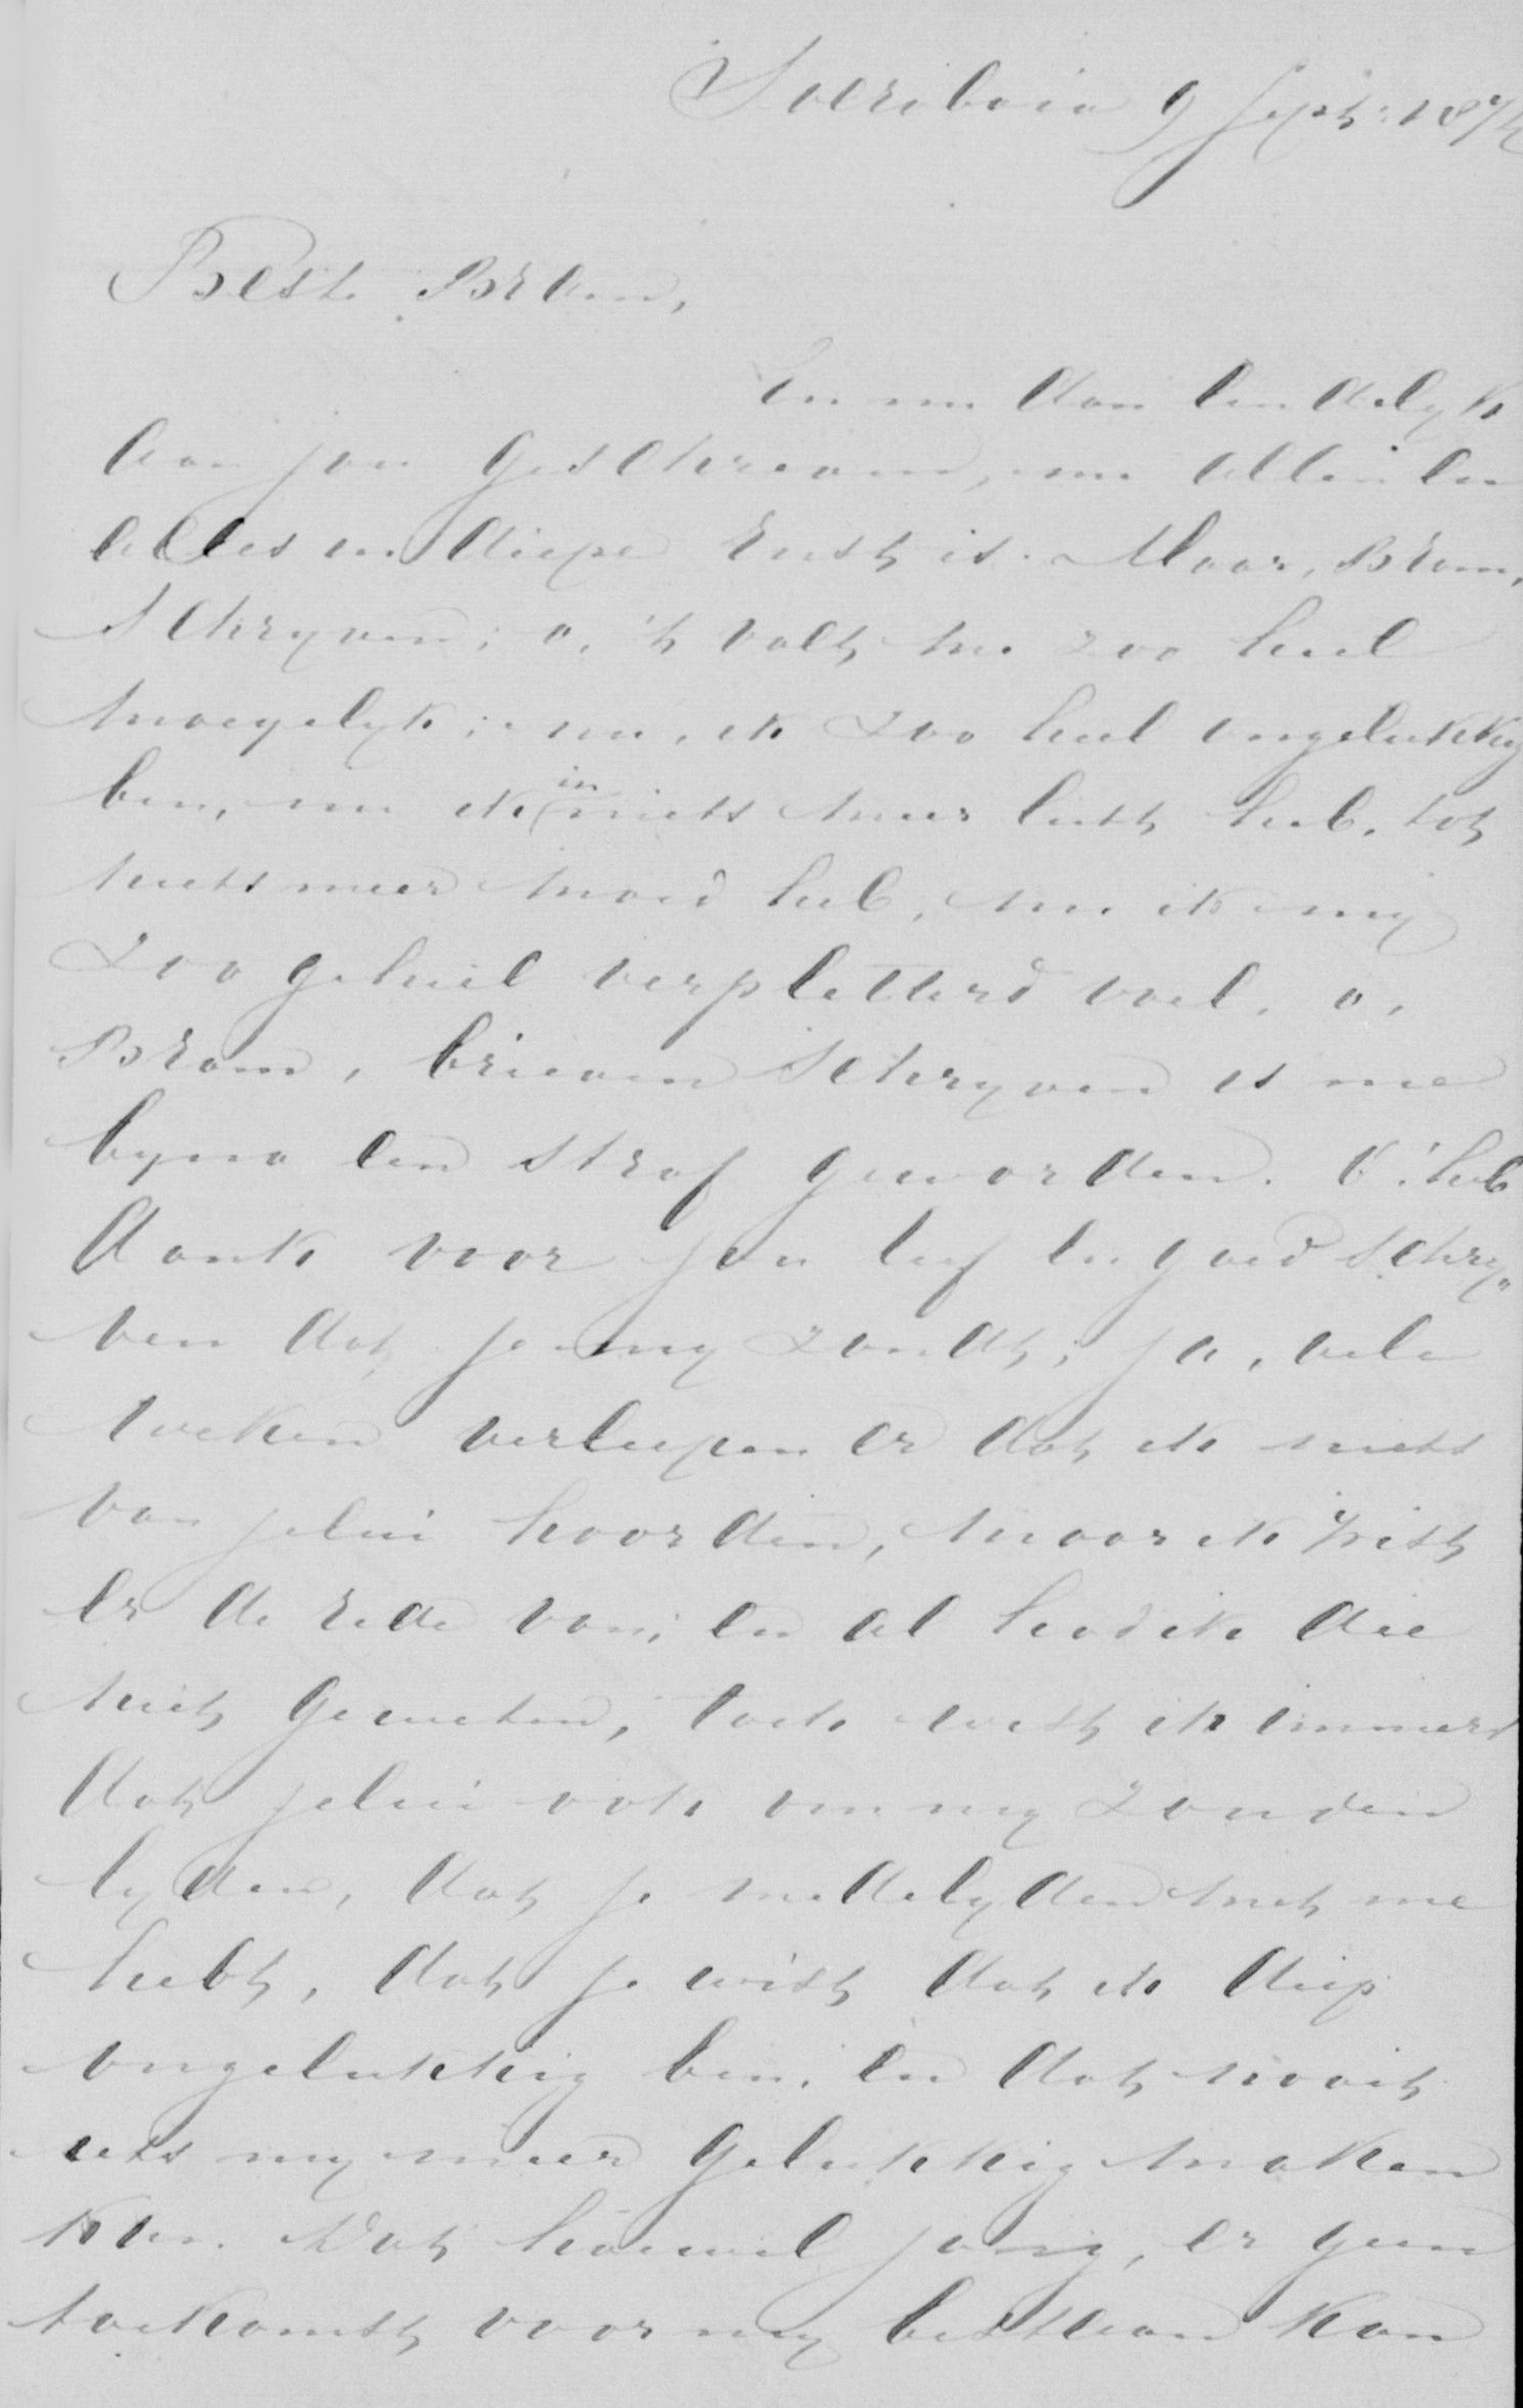 Soeribaia 9 Sept: 1874
Beste Bram,
En nu dan eendelyk
aan jou geschreven, nu alleen en
alles in diepe rust is. Maar, Bram,
schryven; o, 't valt me zoo heel
moeyelyk; nu, ik zoo heel ongelukkig
ben, nu ik in niets meer lust heb, tot
niets meer moed heb, nu ik mij
zoo geheel verpletterd voel, o,
Bram, brieven schryven is me
byna een straf geworden. O! heb
dank voor jou lief en goed schry„
ven dat je my zondt; ja, vele
weken verliepen er dat ik niets
van jelui hoorden, maar ik wist
er de rede van; en al had ik die
niet geweten, toch wist ik immers
dat jelui ook om my zouden
lyden, dat je medelyden met me
hebt, dat je wist dat ik diep
ongelukkig ben, en dat nooit
iets my meer gelukkig maken
kan. Dat hoewel jong, er geen
toekomst voor my bestaan kan